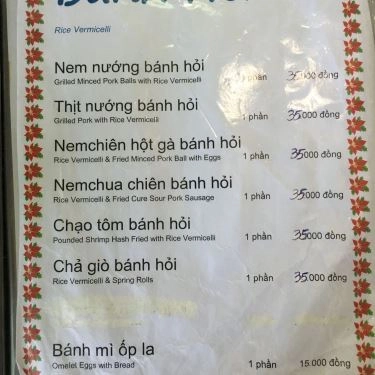 Rice Vermicelli
Nem nướng bánh hỏi
Grilled Minced Pork Balls with Rice Vermicelli 1 phần 35.000 đồng
Thịt nướng bánh hỏi
Grilled Pork with Rice Vermicelli 1 phần 35.000 đồng
Nemchiên hột gà bánh hỏi
Rice Vermicelli & Fried Minced Pork Ball with Eggs 1 phần 35.000 đồng
Nemchua chiên bánh hỏi
Rice Vermicelli & Fried Cure Sour Pork Sausage 1 phần 35.000 đồng
Chạo tôm bánh hỏi
Pounded Shrimp Hash Fried with Rice Vermicelli 1 phần 35.000 đồng
Chả giò bánh hỏi
Rice Vermicelli & Spring Rolls 1 phần 35.000 đồng
Bánh mì ốp la
Omelet Eggs with Bread 1 phần 15.000 đồng